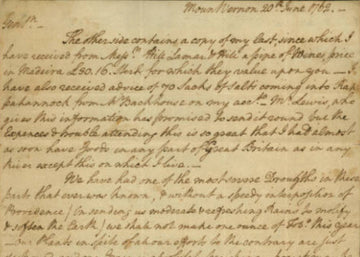 Mount Vernon 20th June 1762.
Gentn. —
The other side contains a copy of my last, since which I
have received from Messrs. Hill Lamar & Hill a pipe of Wine, price
in Madeira £30.16. Sterl. for which they value upon you — I
have also received advice of 70 Sacks of Salt coming into Rap
pahannock from Mr. Backhouse on my acct. — Mr. Lewis, who
gives this information has promised to send it round but the
Expences & trouble attending this is so great that I had almost
as soon have Goods in any part of Great Britain as in any
River except this on which I live. —
We have had one of the most severe Droughts in these
parts that ever was known, & without a speedy interposition of
Providence (in sending us moderate & refreshing Rains to molify
& soften the Earth) we shall not make one ounce of Tobo. this year
Our Plants in spite of all our efforts to the contrary are just